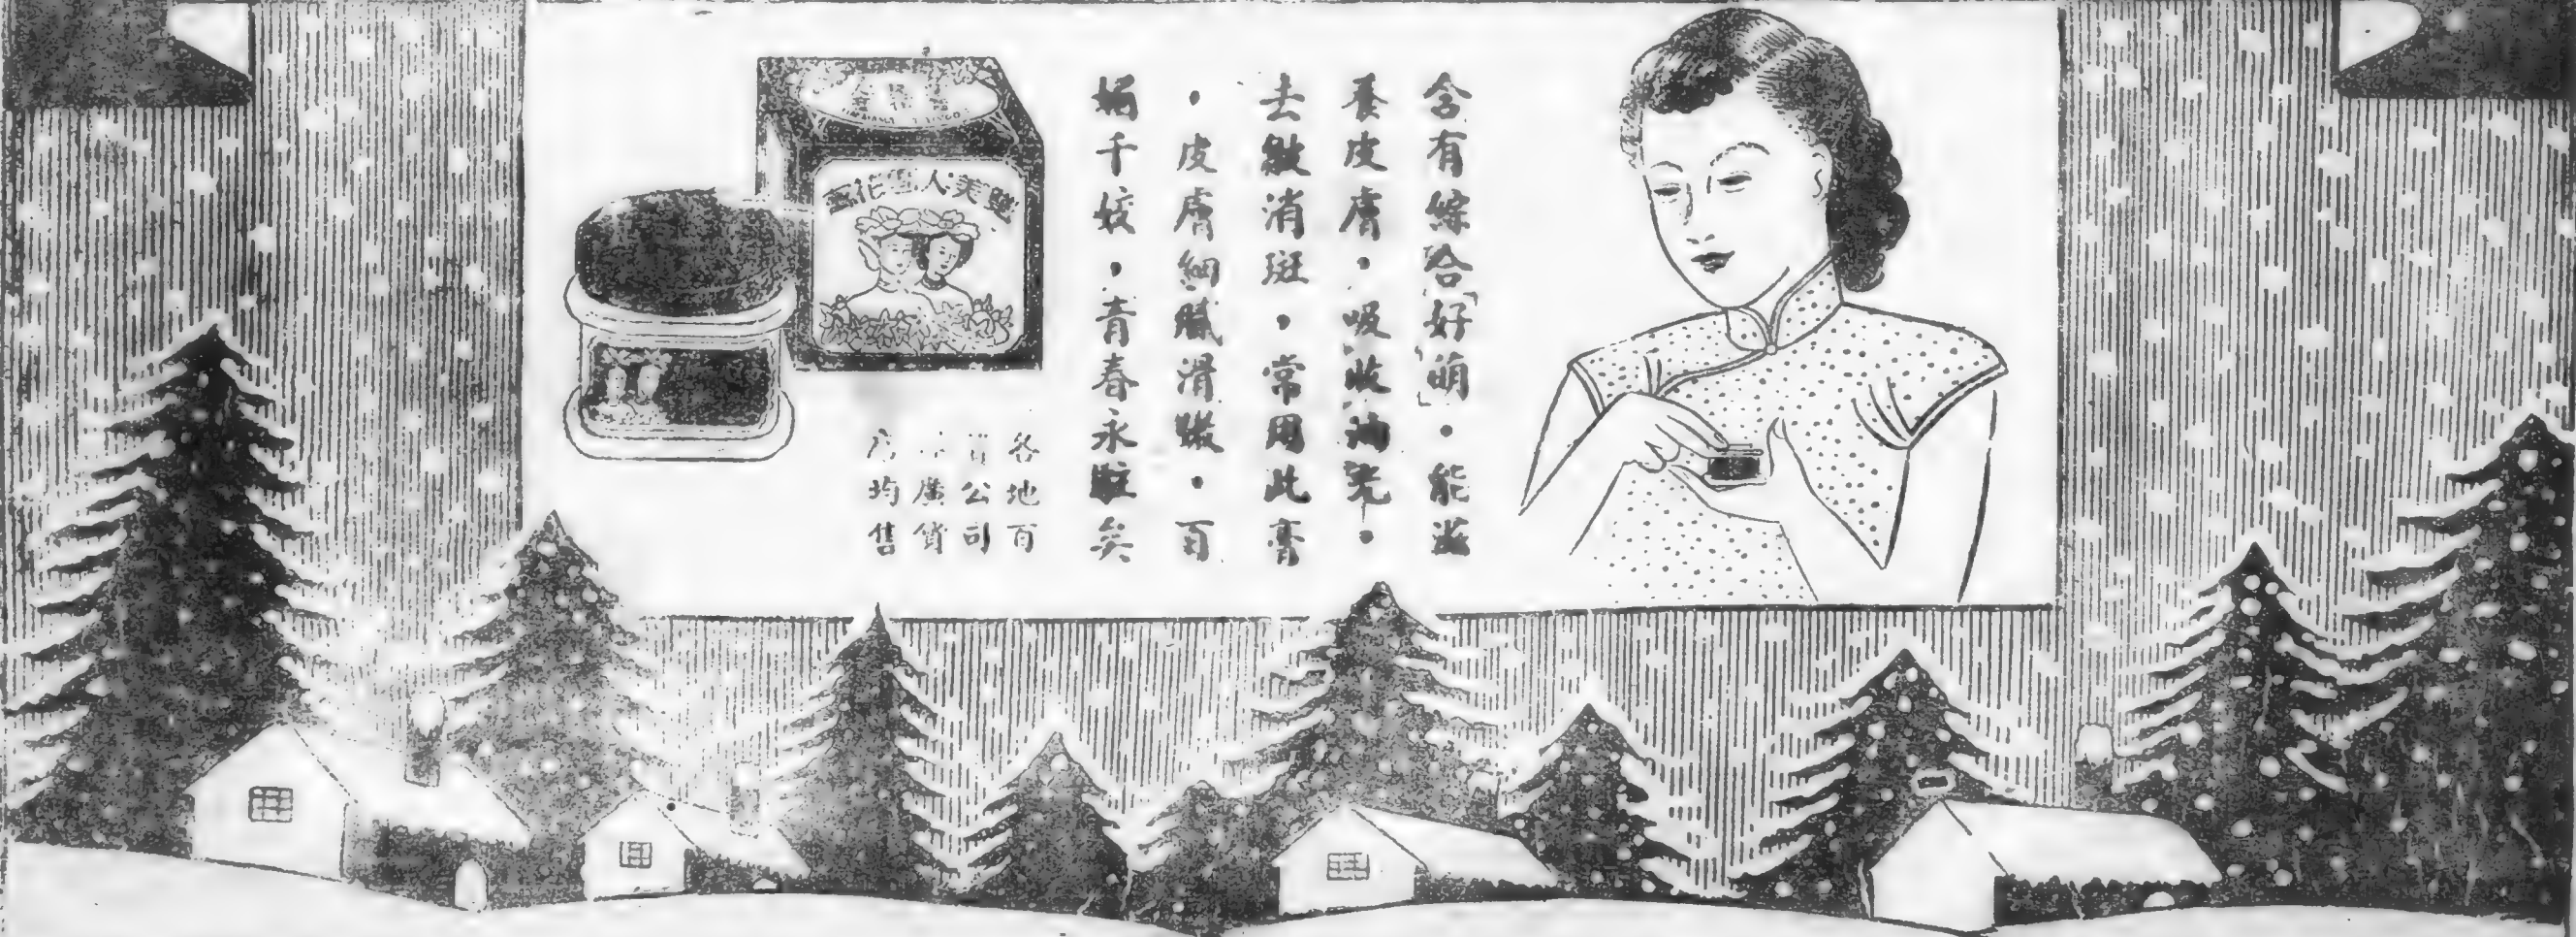 含有綜合「好萌」·能滋
養皮膚·吸收油光·
去皺消斑·常用此膏
·皮膚細膩滑嫩·百
媚千姣·青春永駐矣
各地百
公司
廣貨
均售
雙美人雪花膏